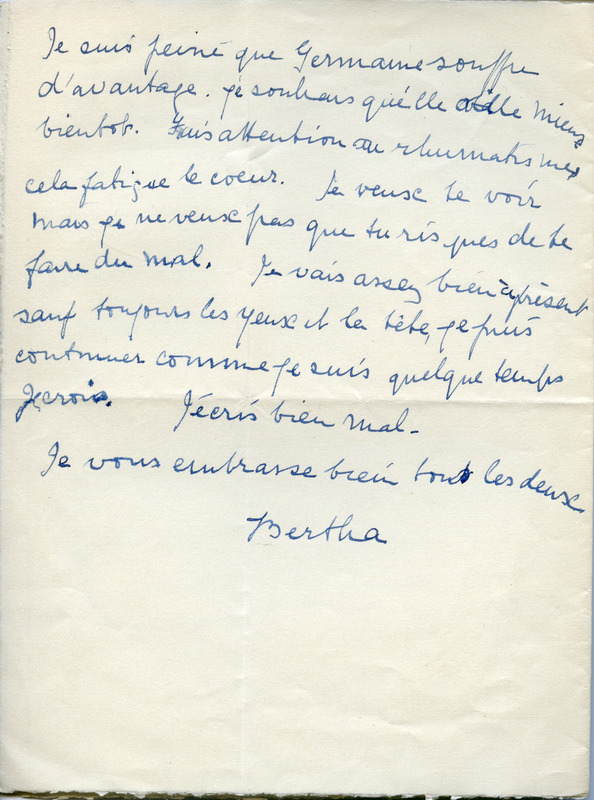 Je suis peiné que Germaine souffre
d'avantage. je souhais qu'elle aille mieux
bientot. Fais attention au rhumatisme,
cela fatigue le coeur. Je veux te voir
mais je ne veux pas que tu risques de te
faire du mal. Je vais assez bien à présent
sauf toujours les yeux et la tête, je puis
continuer comme je suis quelque temps
Je crois. J'écris bien mal.
Je vous embrasse bien tous les deux
Bertha